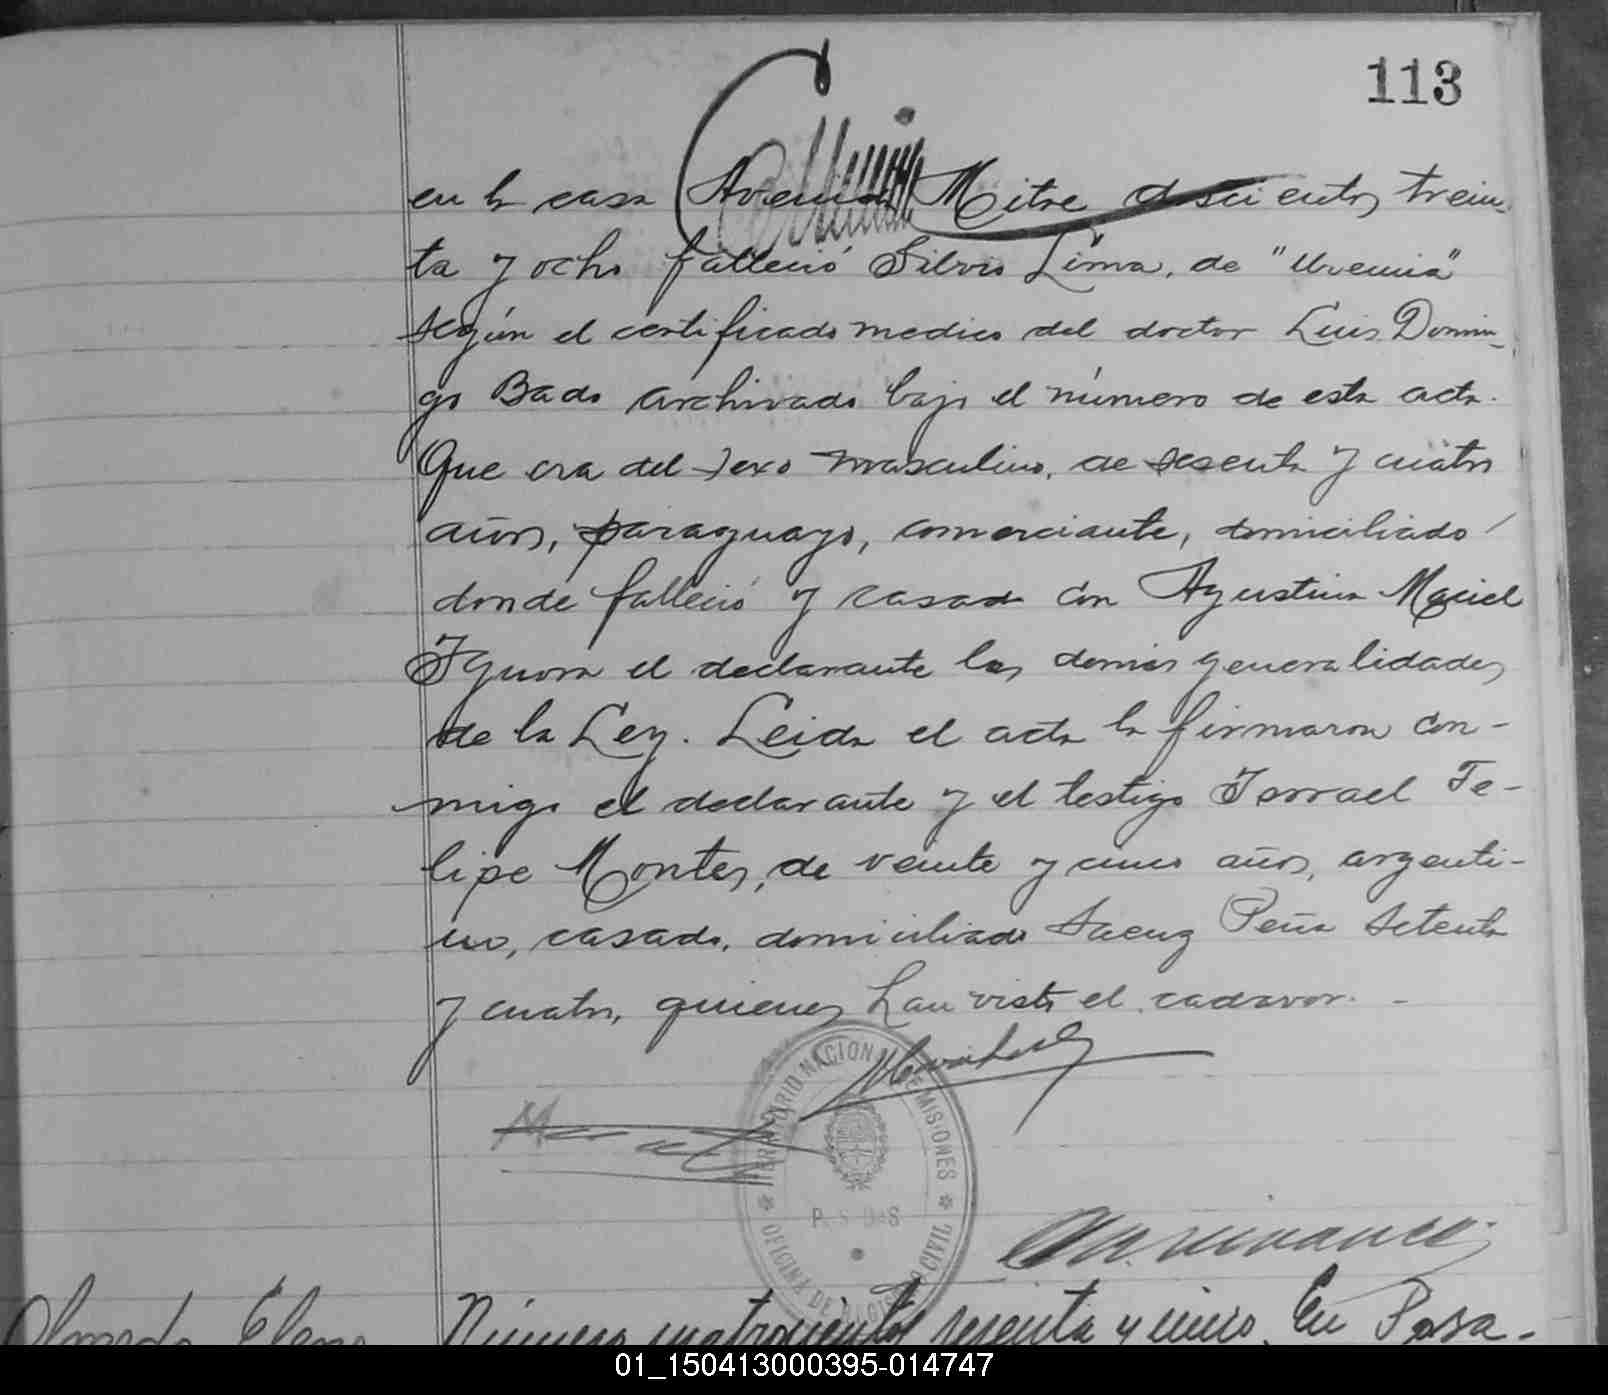 113
en la casa Avenida Mitre doscientos trein-
ta y ocho falleció Silvio Lima, de "Uremia"
según el certificado medico del doctor Luis Domin-
go Bado archivado bajo el número de esta acta.
Que era del sexo masculino, de sesenta y cuatro
años, paraguayo, comerciante, domiciliado
donde falleció y casado con Agustina Maciel
Ignora el declarante las demás generalidades
de la Ley. Leida el acta la firmaron con-
migo el declarante y el testigo Ismael Fe-
lipe Montes, de veinte y cinco años, argenti-
no, casado, domiciliado Saenz Peña setenta
y cuatro, quienes han visto el cadaver. -
TERRITORIO NACIONAL DE MISIONES
OFICINA DE REGISTRO CIVIL
Olmedo Elena
Número cuatrocientos sesenta y cinco. En Posa-
01_150413000395-014747